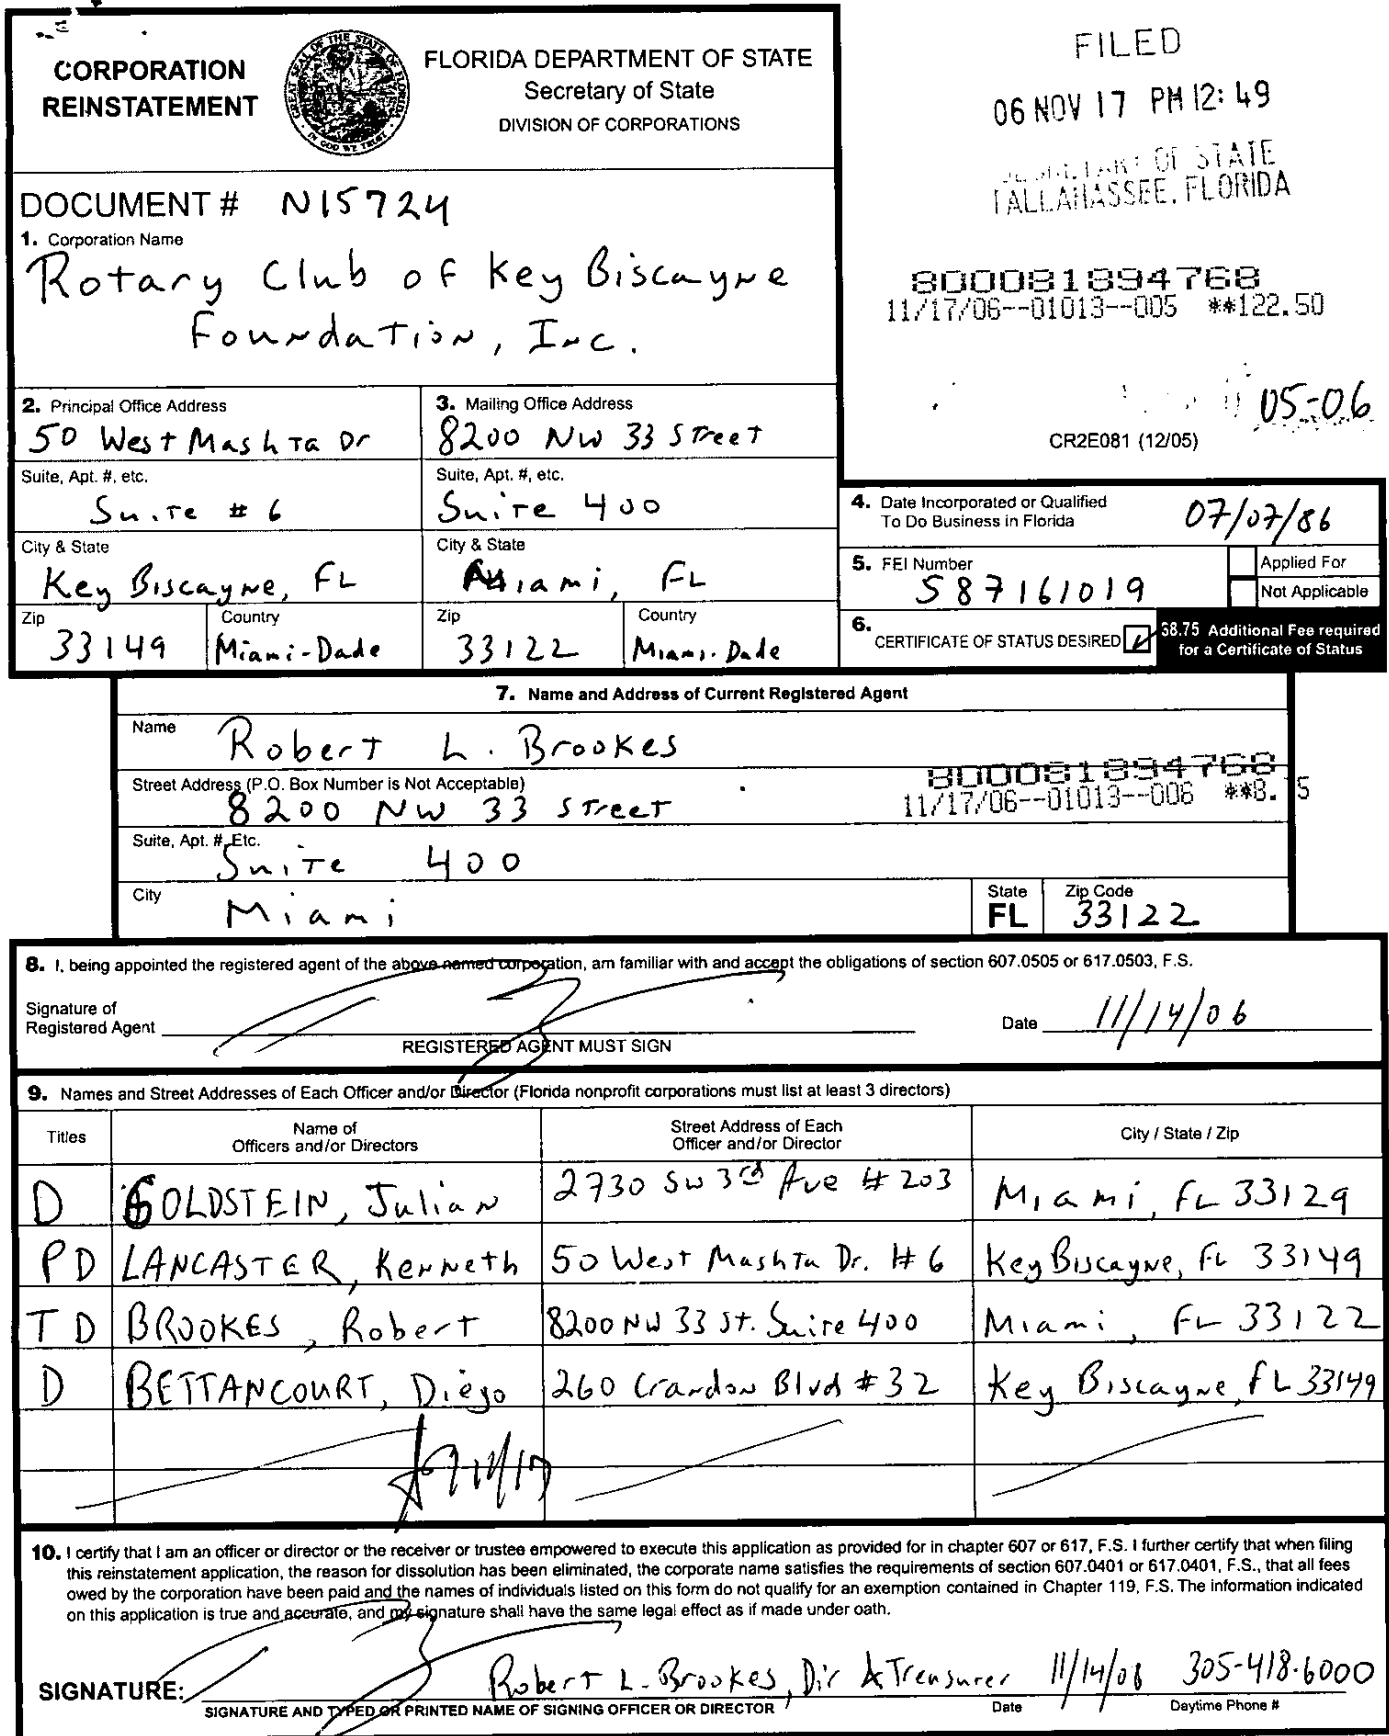 CORPORATION
REINSTATEMENT
GREAT SEAL OF THE STATE OF FLORIDA
IN GOD WE TRUST
FLORIDA DEPARTMENT OF STATE
Secretary of State
DIVISION OF CORPORATIONS
FILED
06 NOV 17 PM 12:49
OF STATE
TALLAHASSEE, FLORIDA
DOCUMENT # N15724
1. Corporation Name
Rotary Club of Key Biscayne
Foundation, Inc.
800081894768
11/17/06--01013--005 **122.50
05-06
CR2E081 (12/05)
2. Principal Office Address
50 West Mashta Dr
3. Mailing Office Address
8200 NW 33 Street
Suite, Apt. #, etc.
Suite # 6
Suite, Apt. #, etc.
Suite 400
City & State
Key Biscayne, FL
City & State
Miami, FL
Zip
33149
Country
Miami-Dade
Zip
33122
Country
Miami-Dade
4. Date Incorporated or Qualified
To Do Business in Florida
07/07/86
5. FEI Number
587161019
Applied For
Not Applicable
6. CERTIFICATE OF STATUS DESIRED
$8.75 Additional Fee required
for a Certificate of Status
7. Name and Address of Current Registered Agent
Name
Robert L. Brookes
Street Address (P.O. Box Number is Not Acceptable)
8200 NW 33 Street
800081894768
11/17/06--01013--006 **8. 5
Suite, Apt. #, Etc.
Suite 400
City
Miami
State
FL
Zip Code
33122
8. I, being appointed the registered agent of the above named corporation, am familiar with and accept the obligations of section 607.0505 or 617.0503, F.S.
Signature of
Registered Agent
Date 11/14/06
REGISTERED AGENT MUST SIGN
9. Names and Street Addresses of Each Officer and/or Director (Florida nonprofit corporations must list at least 3 directors)
Titles
Name of
Officers and/or Directors
Street Address of Each
Officer and/or Director
City / State / Zip
D GOLDSTEIN, Julian 2730 SW 3rd Ave # 203 Miami, FL 33129
PD LANCASTER, Kenneth 50 West Mashta Dr. # 6 Key Biscayne, FL 33149
TD BROOKES, Robert 8200 NW 33 St. Suite 400 Miami, FL 33122
D BETTANCOURT, Diego 260 Crandon Blvd # 32 Key Biscayne, FL 33149
10. I certify that I am an officer or director or the receiver or trustee empowered to execute this application as provided for in chapter 607 or 617, F.S. I further certify that when filing
this reinstatement application, the reason for dissolution has been eliminated, the corporate name satisfies the requirements of section 607.0401 or 617.0401, F.S., that all fees
owed by the corporation have been paid and the names of individuals listed on this form do not qualify for an exemption contained in Chapter 119, F.S. The information indicated
on this application is true and accurate, and my signature shall have the same legal effect as if made under oath.
SIGNATURE: Robert L. Brookes, Dir & Treasurer 11/14/06 305-418-6000
SIGNATURE AND TYPED OR PRINTED NAME OF SIGNING OFFICER OR DIRECTOR
Date
Daytime Phone #